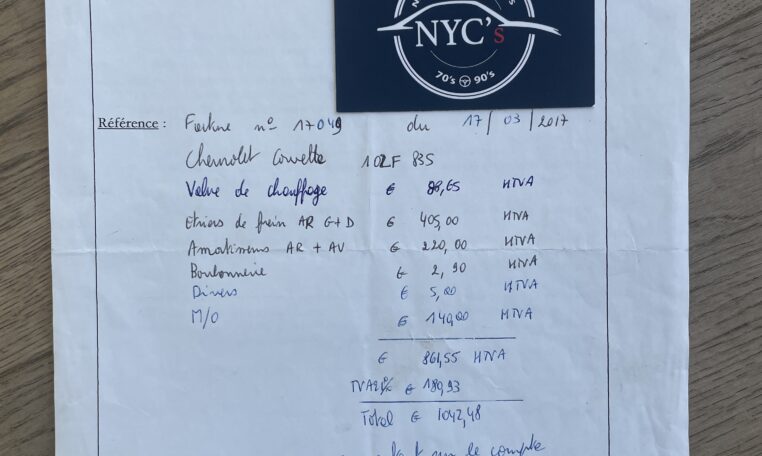 NYC's
70's 90's
Référence : Facture n° 17049 du 17/03/2017
Chevrolet Corvette 102F 835
Valve de chauffage € 88,65 HTVA
Etriers de frein AR G+D € 405,00 HTVA
Amortisseurs AR + AV € 220,00 HTVA
Boulonnerie € 2,90 HTVA
Divers € 5,00 HTVA
M/O € 140,00 HTVA
€ 861,55 HTVA
TVA 21% € 180,93
Total € 1042,48
sur le compte